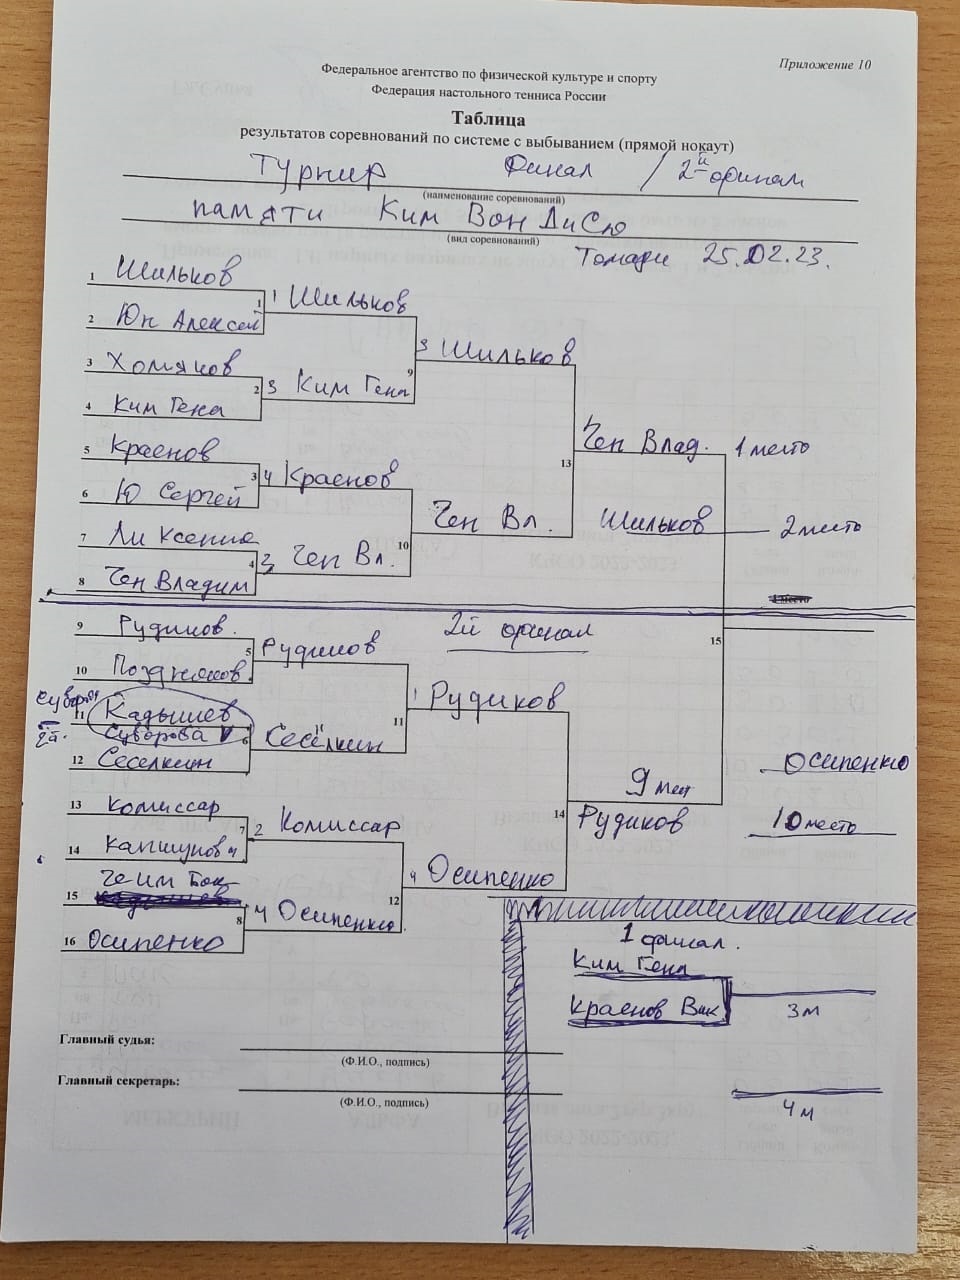 Приложение 10
Федеральное агентство по физической культуре и спорту
Федерация настольного тенниса России
Таблица
результатов соревнований по системе с выбыванием (прямой нокаут)
Турнир Финал / 2й финал
(наименование соревнований)
памяти Ким Вон ДиСю
(вид соревнований)
Томари 25.02.23.
1 Шильков
1 1 Шильков
2 Юн Алексей
3 Шильков
3 Хомяков
9
2 3 Ким Гена
4 Ким Гена
Чен Влад. 1 место
5 Краснов
13
3 4 Краснов
6 Ю Сергей
Чен Вл.
Шильков 2 место
7 Ли Ксения
10
4 3 Чен Вл.
8 Чен Владим
1 место
9 Рудиков.
2й финал
15
5 Рудиков
10 Поздняков
1 Рудиков
11 Кадышев
11
Суворова
6 Сеселкин
12 Сеселкин
Осипенко
9 мест
13 Комиссар
14 Рудиков
10 место
7 2 Комиссар
14 Капшунов
4 Осипенко
Че им Бок
15
12
8 4 Осипенко
16 Осипенко
1 финал.
Ким Гена
Краснов Вик
3 м
Главный судья:
(Ф.И.О., подпись)
Главный секретарь:
(Ф.И.О., подпись)
4 м